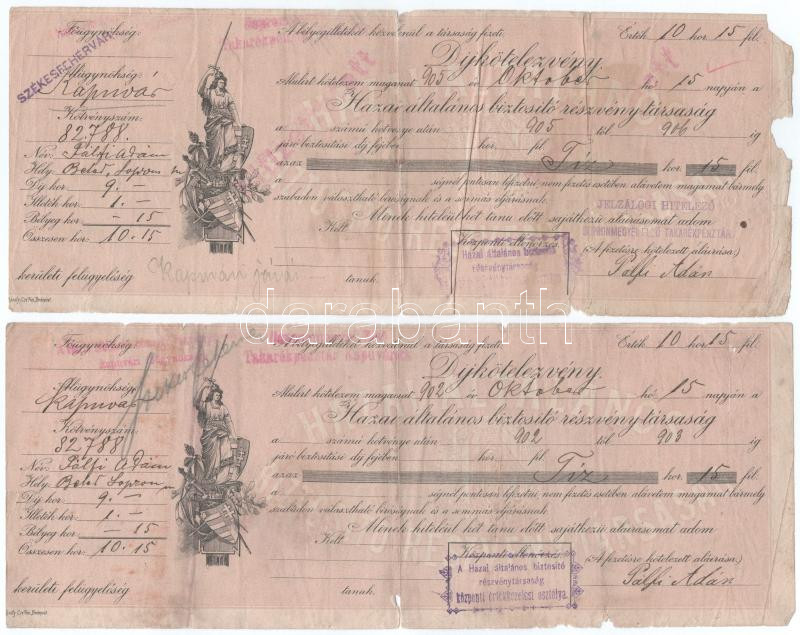 Főügynökség:
SZÉKESFEHÉRVÁR
Alügynökség:
Kapuvár
Kötvényszám:
82.788.
Név: Pálfi Ádám
Hely: Beled, Sopron m
Díj kor. 9. —
Illeték kor. 1. —
Bélyeg kor. — 15
Összesen kor. 10.15
kerületi felügyelőség
A bélyegilletéket készpénzül a társaság fizeti.
Érték 10 kor 15 fil.
Díjkötelezvény.
Alulírt kötelezem magamat 905 év Oktober hó 15 napján a
Hazai általános biztosító részvénytársaság
a számú kötvénye után 905 től 906 ig
járó biztosítási díj fejében kor. fil. Tíz
azaz kor. 15 fil.
a ségnél pontosan lefizetni nem fizetés esetében alávetem magamat bármely
szabadon választható bíróságnak és a sommás eljárásnak.
JELZÁLOGI HITELEZŐ
Minek hiteléül két tanú előtt sajátkezű aláírásomat adom
Kelt
Központi ellenőrzés.
A Hazai általános biztosító
részvénytársaság
(A fizetésre kötelezett aláírása:)
Pálfi Ádám
tanuk.
darabanth
Főügynökség:
Takarékpénztár Kapuvár
Alügynökség:
Kapuvár
Kötvényszám:
82788
Név: Pálfi Ádám
Hely: Beled Sopron m
Díj kor. 9. —
Illeték kor. 1. —
Bélyeg kor. — 15
Összesen kor. 10.15
kerületi felügyelőség
A bélyegilletéket készpénzül a társaság fizeti.
Érték 10 kor 15 fil.
Díjkötelezvény.
Alulírt kötelezem magamat 902 év Oktober hó 15 napján a
Hazai általános biztosító részvénytársaság
a számú kötvénye után 902 től 903 ig
járó biztosítási díj fejében kor. fil. Tíz
azaz kor. 15 fil.
a ségnél pontosan lefizetni nem fizetés esetében alávetem magamat bármely
szabadon választható bíróságnak és a sommás eljárásnak.
Minek hiteléül két tanú előtt sajátkezű aláírásomat adom
Kelt
Központi ellenőrzés.
A Hazai általános biztosító
részvénytársaság
központi értékkezelési osztálya.
(A fizetésre kötelezett aláírása:)
Pálfi Ádám
tanuk.